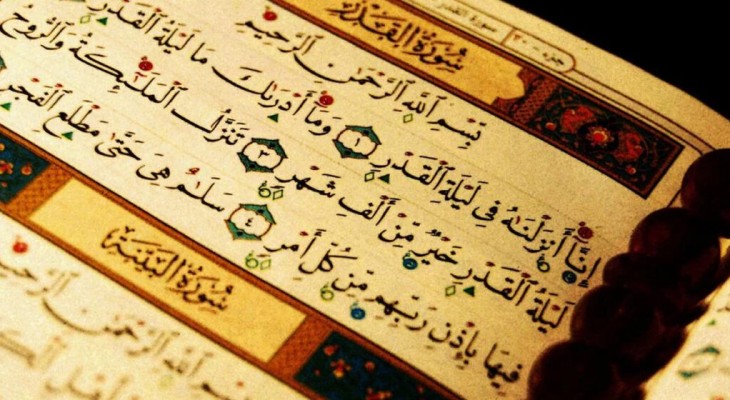 سورة القدر
سُورَةُ القَدْرِ
بِسْمِ ٱللَّهِ ٱلرَّحْمَٰنِ ٱلرَّحِيمِ
إِنَّآ أَنزَلْنَٰهُ فِى لَيْلَةِ ٱلْقَدْرِ ١ وَمَآ أَدْرَىٰكَ مَا لَيْلَةُ ٱلْقَدْرِ
لَيْلَةُ ٱلْقَدْرِ خَيْرٌ مِّنْ أَلْفِ شَهْرٍ ٣ تَنَزَّلُ ٱلْمَلَٰٓئِكَةُ وَٱلرُّوحُ
فِيهَا بِإِذْنِ رَبِّهِم مِّن كُلِّ أَمْرٍ ٤ سَلَٰمٌ هِىَ حَتَّىٰ مَطْلَعِ ٱلْفَجْرِ
سُورَةُ البَيِّنَةِ
بِسْمِ ٱللَّهِ ٱلرَّحْمَٰنِ ٱلرَّحِيمِ